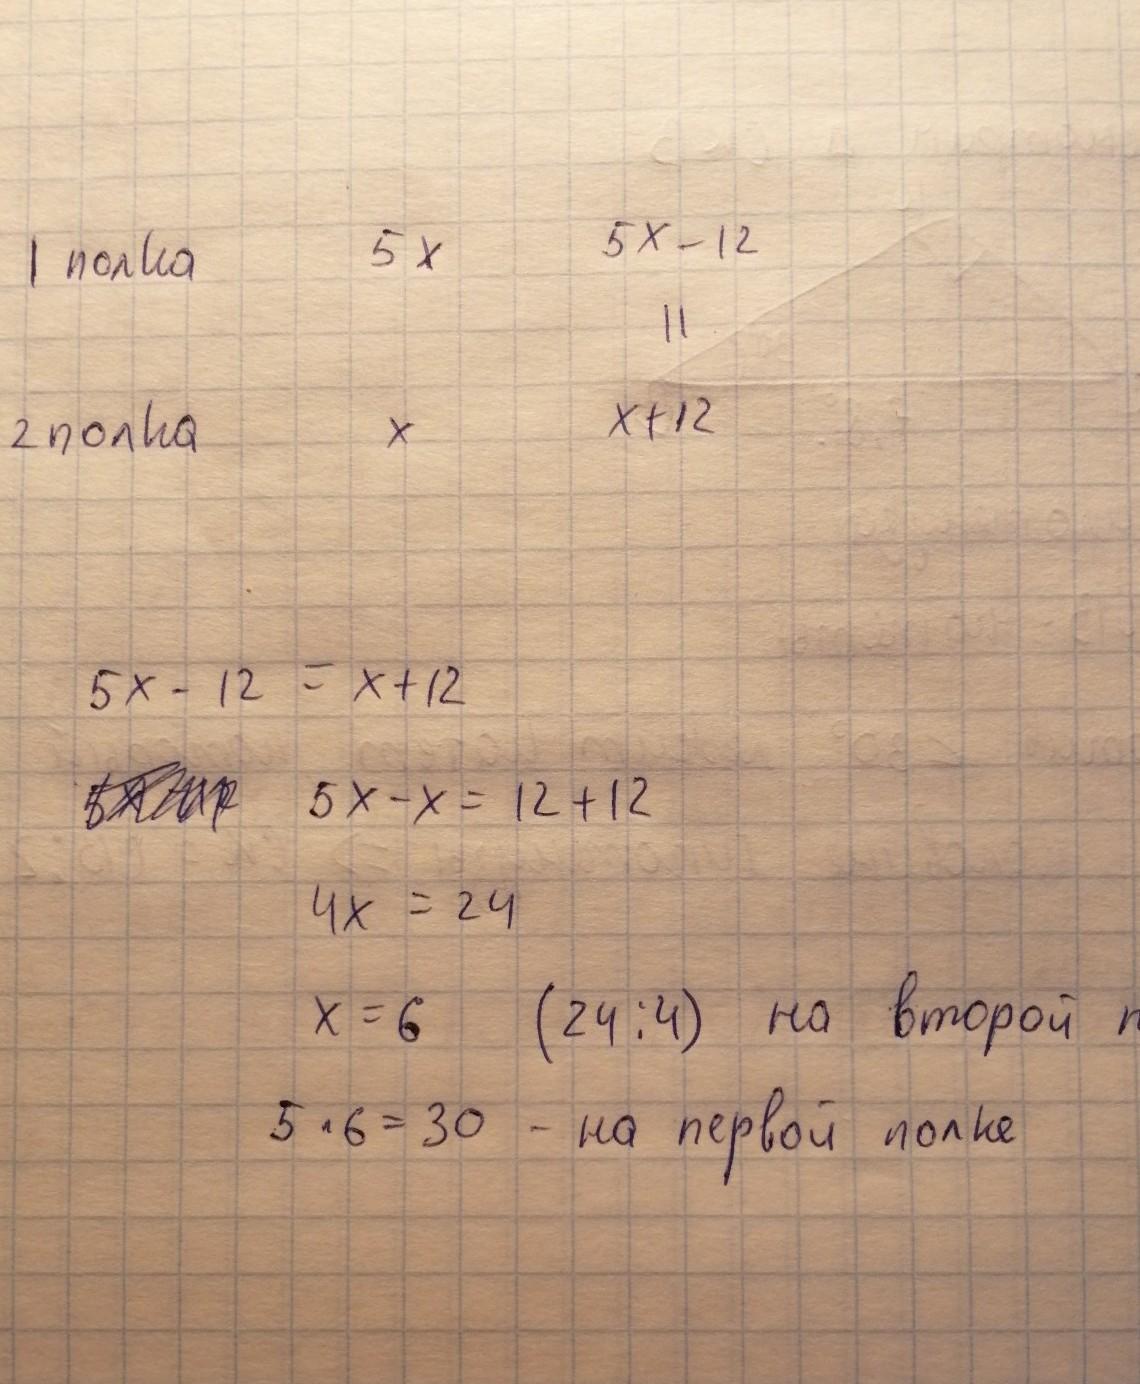 1 полка 5x 5x-12
||
2 полка x x+12
5x - 12 = x+12
5x-x = 12+12
4x = 24
x = 6 (24:4) на второй п
5·6=30 - на первой полке